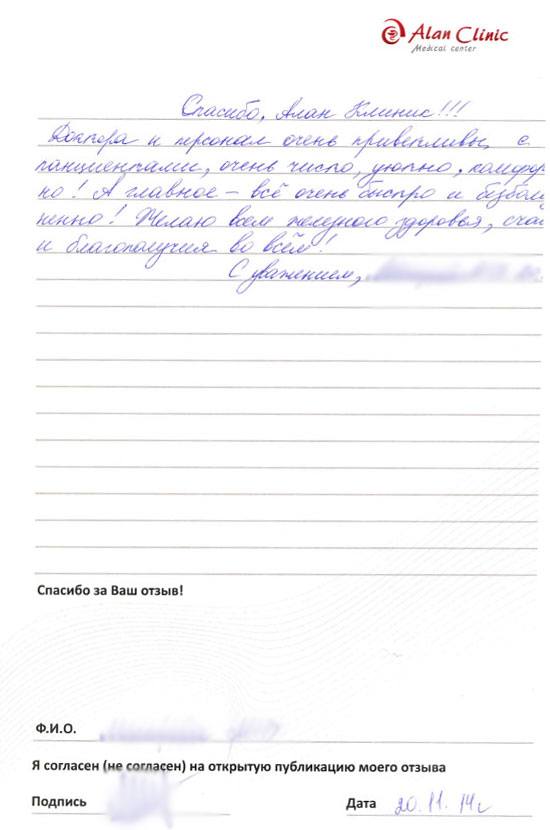 Alan Clinic
Medical center
Спасибо, Алан Клиник!!!
Доктора и персонал очень приветливы с
панциентами, очень чисто, уютно, комфор
но! А главное – всё очень быстро и безболе
ненно! Желаю всем железного здоровья, счас
и благополучия во всём!
С уважением,
Спасибо за Ваш отзыв!
Ф.И.О.
Я согласен (не согласен) на открытую публикацию моего отзыва
Подпись
Дата 20.11.14г